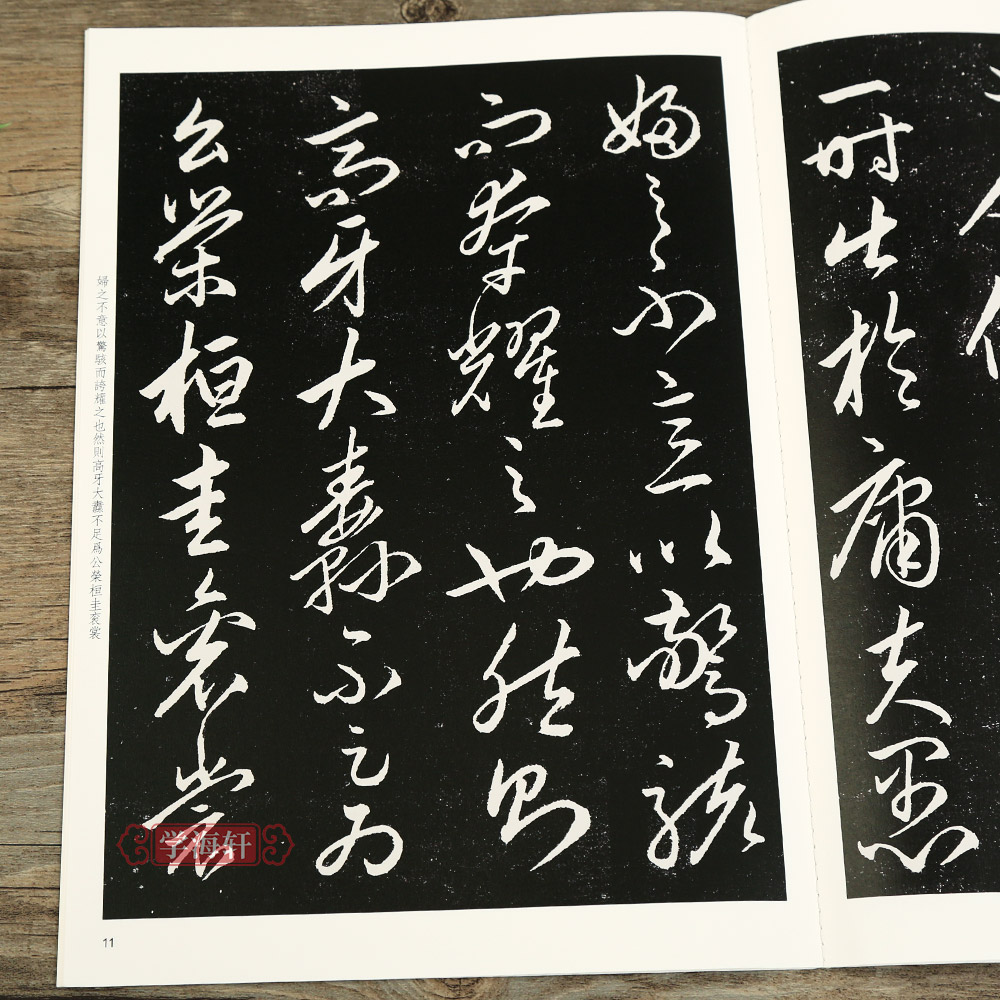 一時出於庸夫愚
婦之不意以驚駭
而誇耀之也然則
高牙大纛不足爲
公榮桓圭袞裳
婦之不意以驚駭而誇耀之也然則高牙大纛不足爲公榮桓圭袞裳
学海轩
11